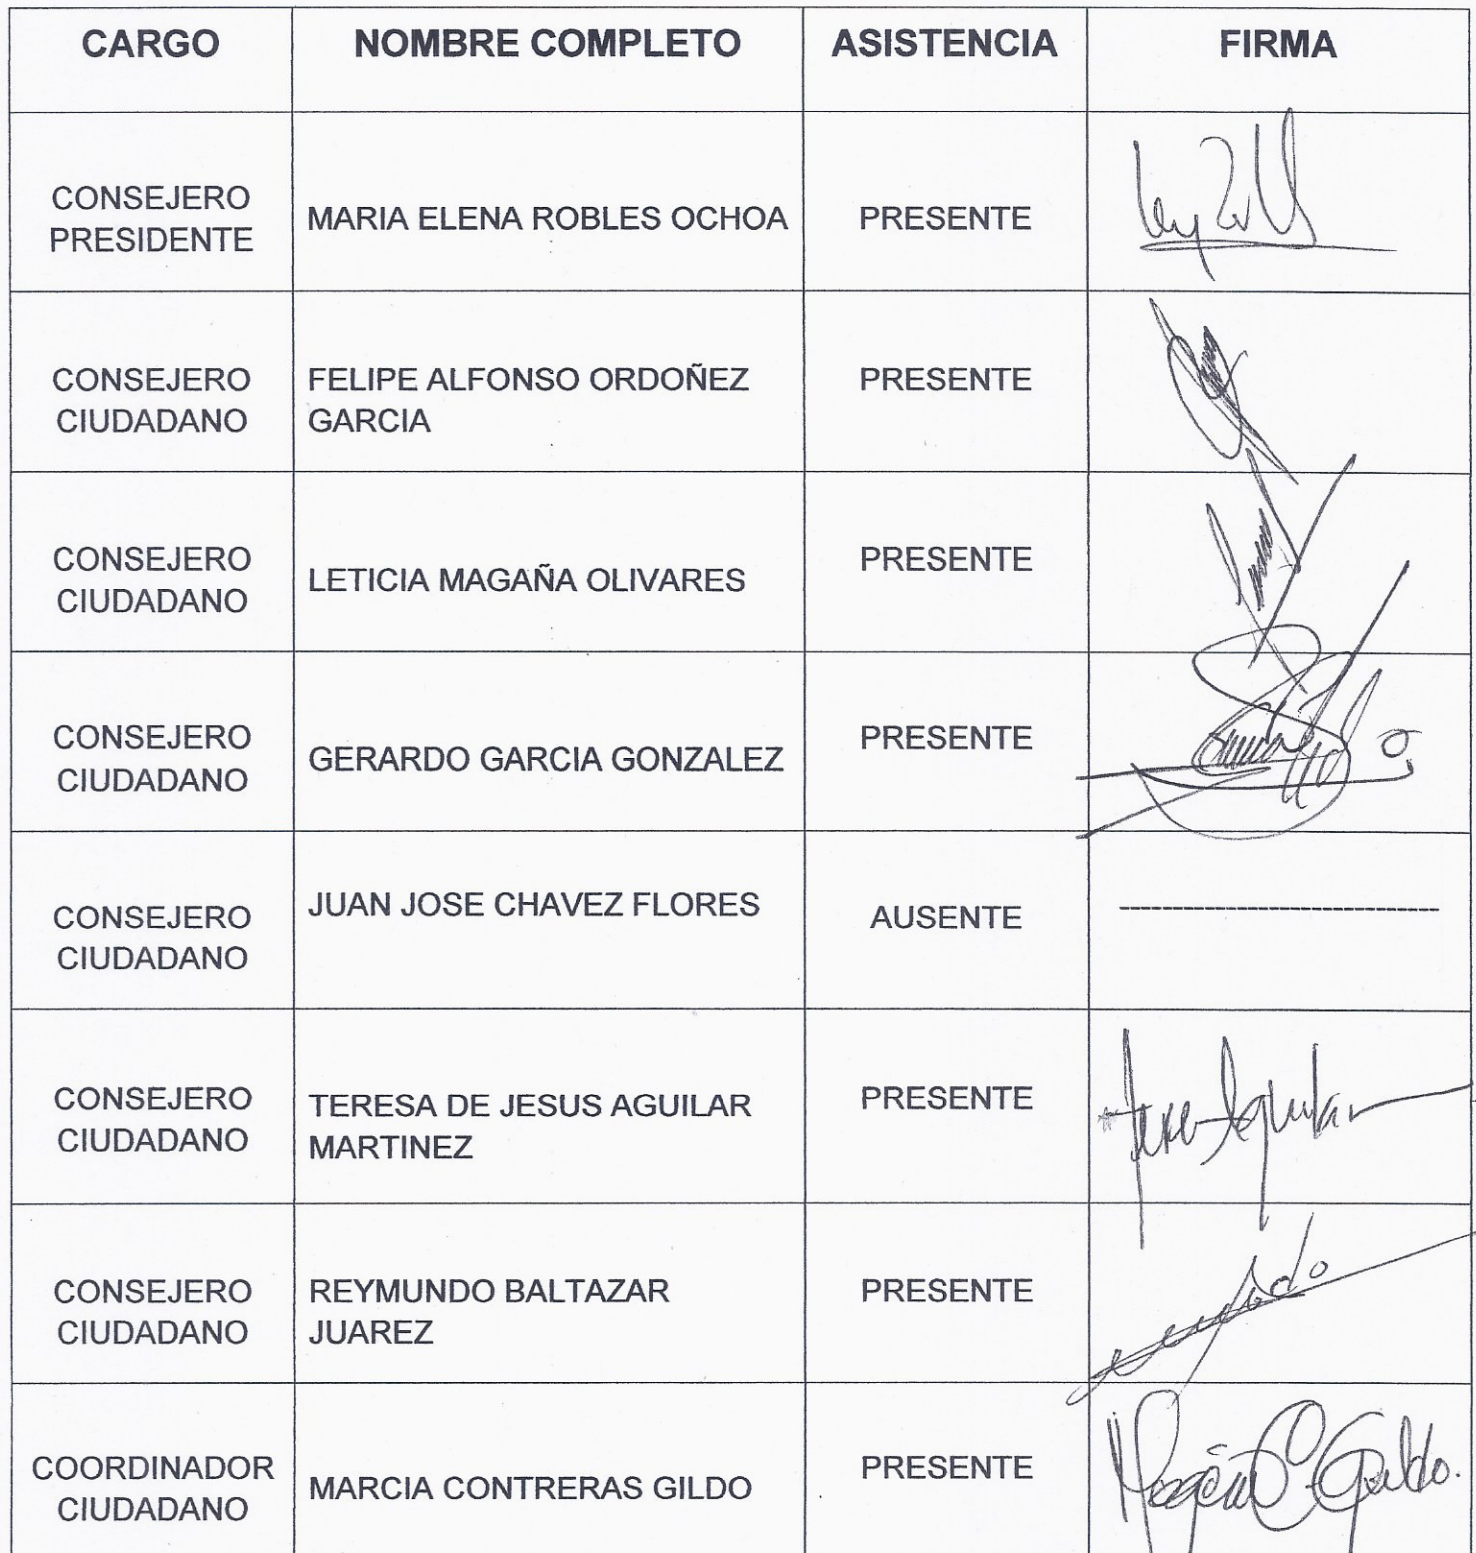 CARGO NOMBRE COMPLETO ASISTENCIA FIRMA
CONSEJERO
PRESIDENTE
MARIA ELENA ROBLES OCHOA
PRESENTE
CONSEJERO
CIUDADANO
FELIPE ALFONSO ORDOÑEZ
GARCIA
PRESENTE
CONSEJERO
CIUDADANO
LETICIA MAGAÑA OLIVARES
PRESENTE
CONSEJERO
CIUDADANO
GERARDO GARCIA GONZALEZ
PRESENTE
CONSEJERO
CIUDADANO
JUAN JOSE CHAVEZ FLORES
AUSENTE
CONSEJERO
CIUDADANO
TERESA DE JESUS AGUILAR
MARTINEZ
PRESENTE
Tere Aguilar
CONSEJERO
CIUDADANO
REYMUNDO BALTAZAR
JUAREZ
PRESENTE
COORDINADOR
CIUDADANO
MARCIA CONTRERAS GILDO
PRESENTE
Marcia C. Gildo.